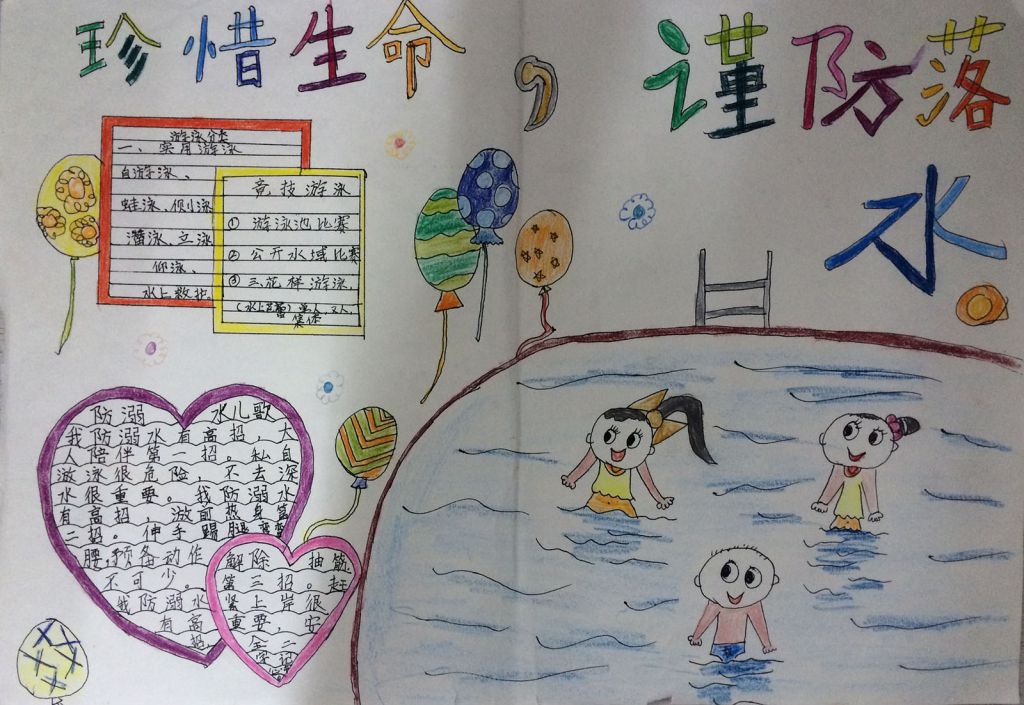 珍惜生命，谨防落
水
游泳分类
一、实用游泳
自游泳、
蛙泳、侧泳
潜泳、立泳
仰泳、
水上救护
竞技游泳
① 游泳池比赛
② 公开水域比赛
③ 三花样游泳
(水上芭蕾)单人,双人,
集体
防溺水儿歌
我防溺水有高招，大
人陪伴第一招。私自
游泳很危险，不去深
水很重要。我防溺水
有高招，游前热身第
二招。伸手踢腿弯弯
腰预备动作
不可少。
我防溺水
有高
招
解除抽筋
第三招。赶
紧上岸很
重要，安
全二